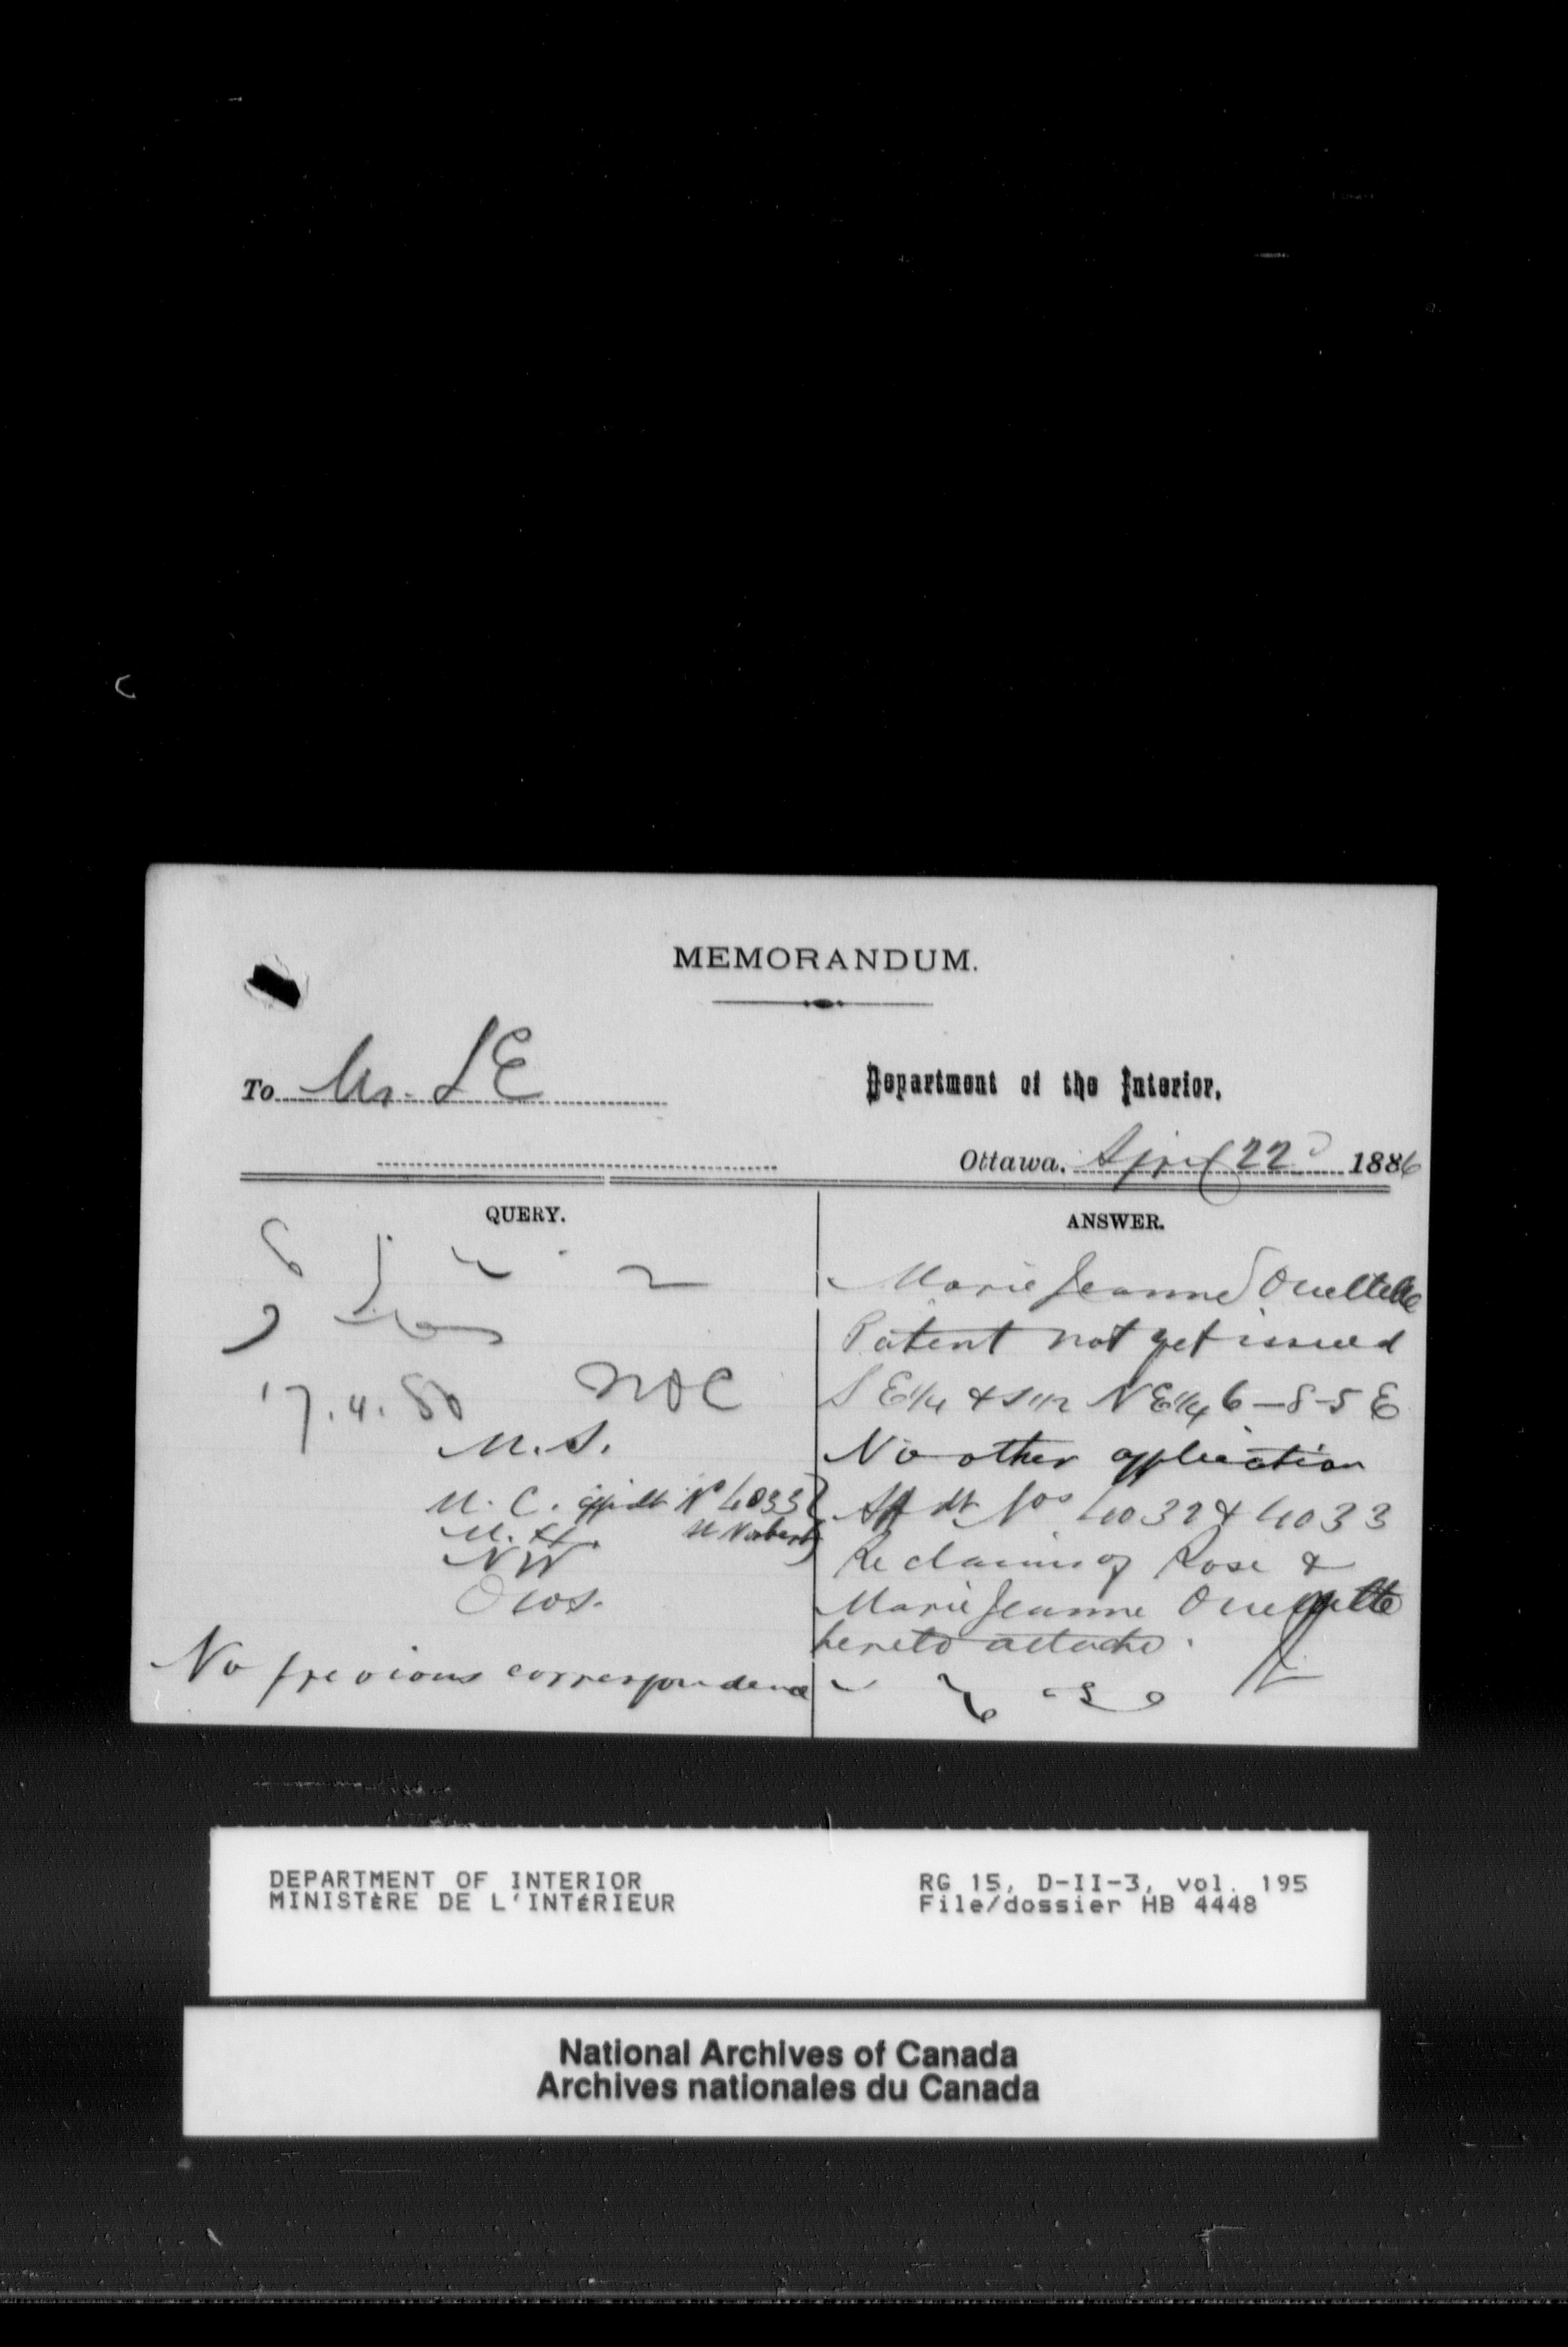 MEMORANDUM.
To Mr. S E
Department of the Interior,
Ottawa, April 22d 1886
QUERY.
17.4.86
M.S.
M.C. affidt No 4033
M.H. St Norbert
NW
No previous correspondence
ANSWER.
Marie Jeanne Ouellette
Patent not yet issued
S E 1/4 & S 1/2 N E 1/4 6-8-5 E
No other application
Affdt Nos 4032 & 4033
Re claims of Rose &
Marie Jeanne Ouellette
hereto attached.
DEPARTMENT OF INTERIOR
MINISTÈRE DE L'INTÉRIEUR
RG 15, D-II-3, vol. 195
File/dossier HB 4448
National Archives of Canada
Archives nationales du Canada